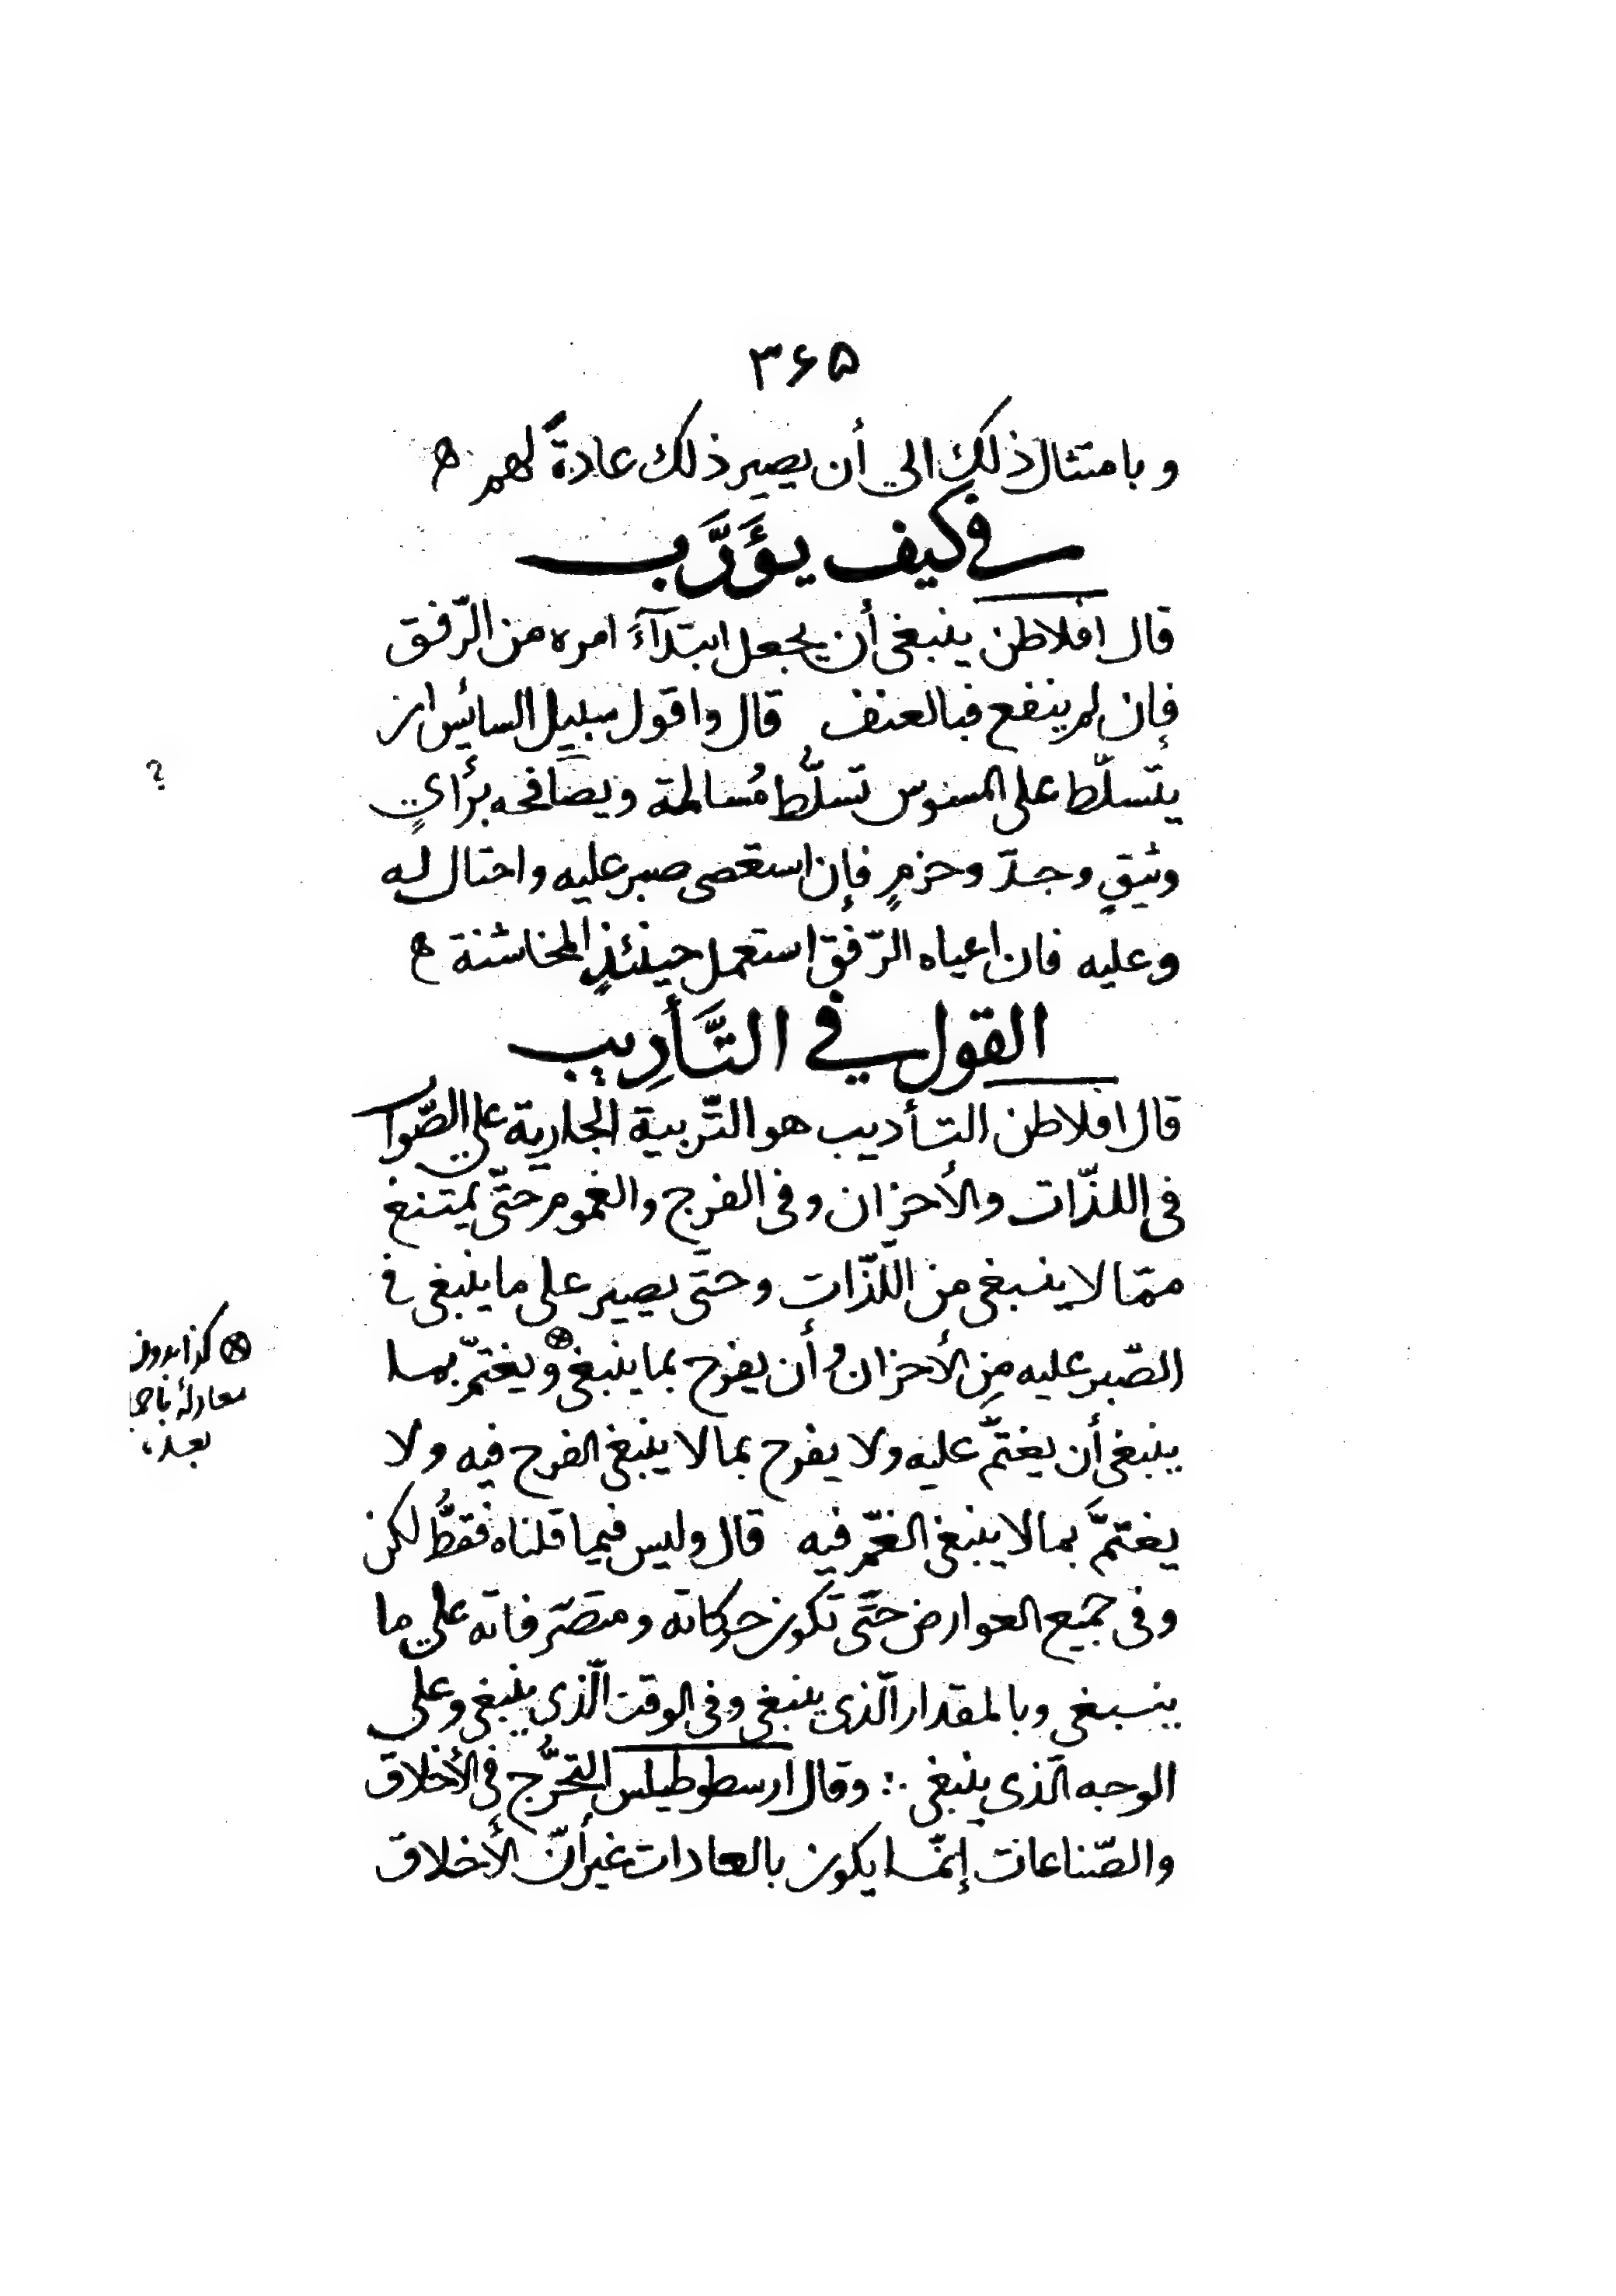 ۳۶۵
و بامتثال ذلك الي أن يصير ذلك عادةً لهم ه
في كيف يؤَدَّب
قال افلاطن ينبغى أن يجعل ابتدآءَ امره من الرّفق
فإن لم ينفع فبالعنف قال واقول سبيل السايُس ان
يتسلّط على المسوس تسلُّط مُسالمة ويصافحه برُأيٍ
وثيقٍ وجدّ وحزمٍ فإن استعصى صبر عليه واحتال له
وعليه فان اعياه الرّفق استعمل حينئذٍ المخاشنة ه
القول في التَّأدِيب
قال افلاطن التأديب هو التّربية الجارية على الصّواب
فى اللذّات والأحزان وفى الفرح والغموم حتّى يمتنع
ممّا لا ينبغى من اللّذّات وحتّى يصير على ما ينبغى في
الصّبر عليه مِن الأحزان وأن يفرح بما ينبغى⊗ ويغتمّ بما
ينبغى أن يغتمَّ عليه ولا يفرح بما لا ينبغى الفرح فيه ولا
يغتمَّ بما لا ينبغى الغمّ فيه قال وليس فيما قلناه فقطُّ لكن
وفى جميع العوارض حتَّى تكون حركاته ومتصرّفاته على ما
ينبغى وبالمقدار الّذى ينبغى وفى الوقت الّذى ينبغى وعلى
الوجه الّذى ينبغى ∴ وقال ارسطوطيلس التخرُّج في الأخلاق
والصّناعات إنّما يكون بالعادات غير أنّ الأخلاق
؟
⊗ كذا بدون
معادلة
بعد،